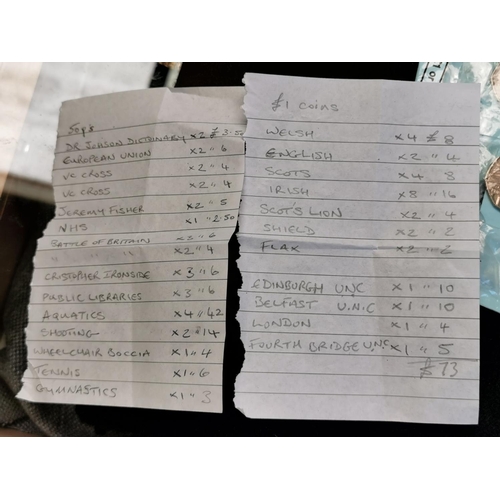 50ps
DR JOHSON DICTIONARY x2 £ 3.50
EUROPEAN UNION x2 " 6
VC CROSS x2 " 4
VC CROSS x2 " 4
JEREMY FISHER x2 " 5
NHS x1 " 2.50
BATTLE OF BRITAIN x3 " 6
" " x2 " 4
CRISTOPHER IRONSIDE x3 " 6
PUBLIC LIBRARIES x3 " 6
AQUATICS x4 " 42
SHOOTING x2 " 14
WHEELCHAIR BOCCIA x1 " 4
TENNIS x1 " 6
GYMNASTICS x1 " 3
£1 coins
WELSH x4 £ 8
ENGLISH x2 " 4
SCOTS x4 8
IRISH x8 " 16
SCOT'S LION x2 " 4
SHIELD x2 " 2
FLAX x2 " 2
EDINBURGH UNC x1 " 10
BELFAST U.N.C x1 " 10
LONDON x1 " 4
FOURTH BRIDGE UNC x1 " 5
£73